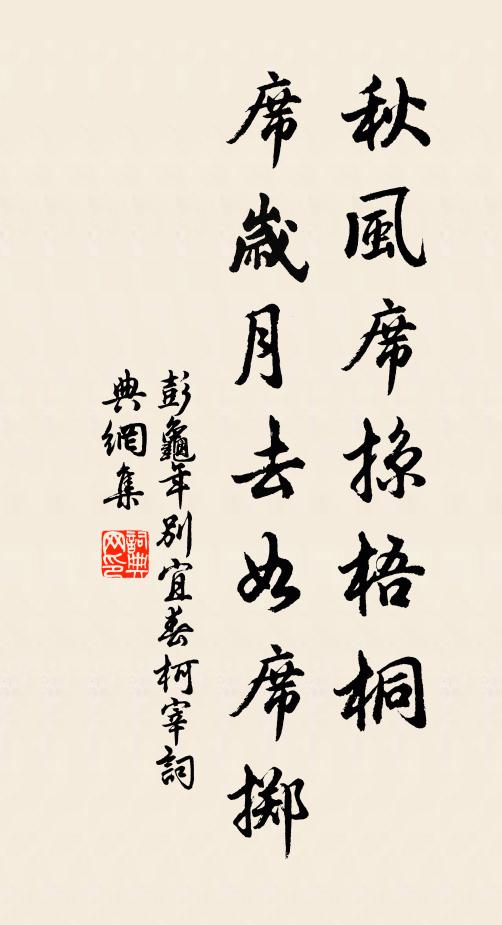 秋風席掠梧桐
席歲月去如席擲
彭龜年別宜春柯宰詞
典網集
詞典
网印